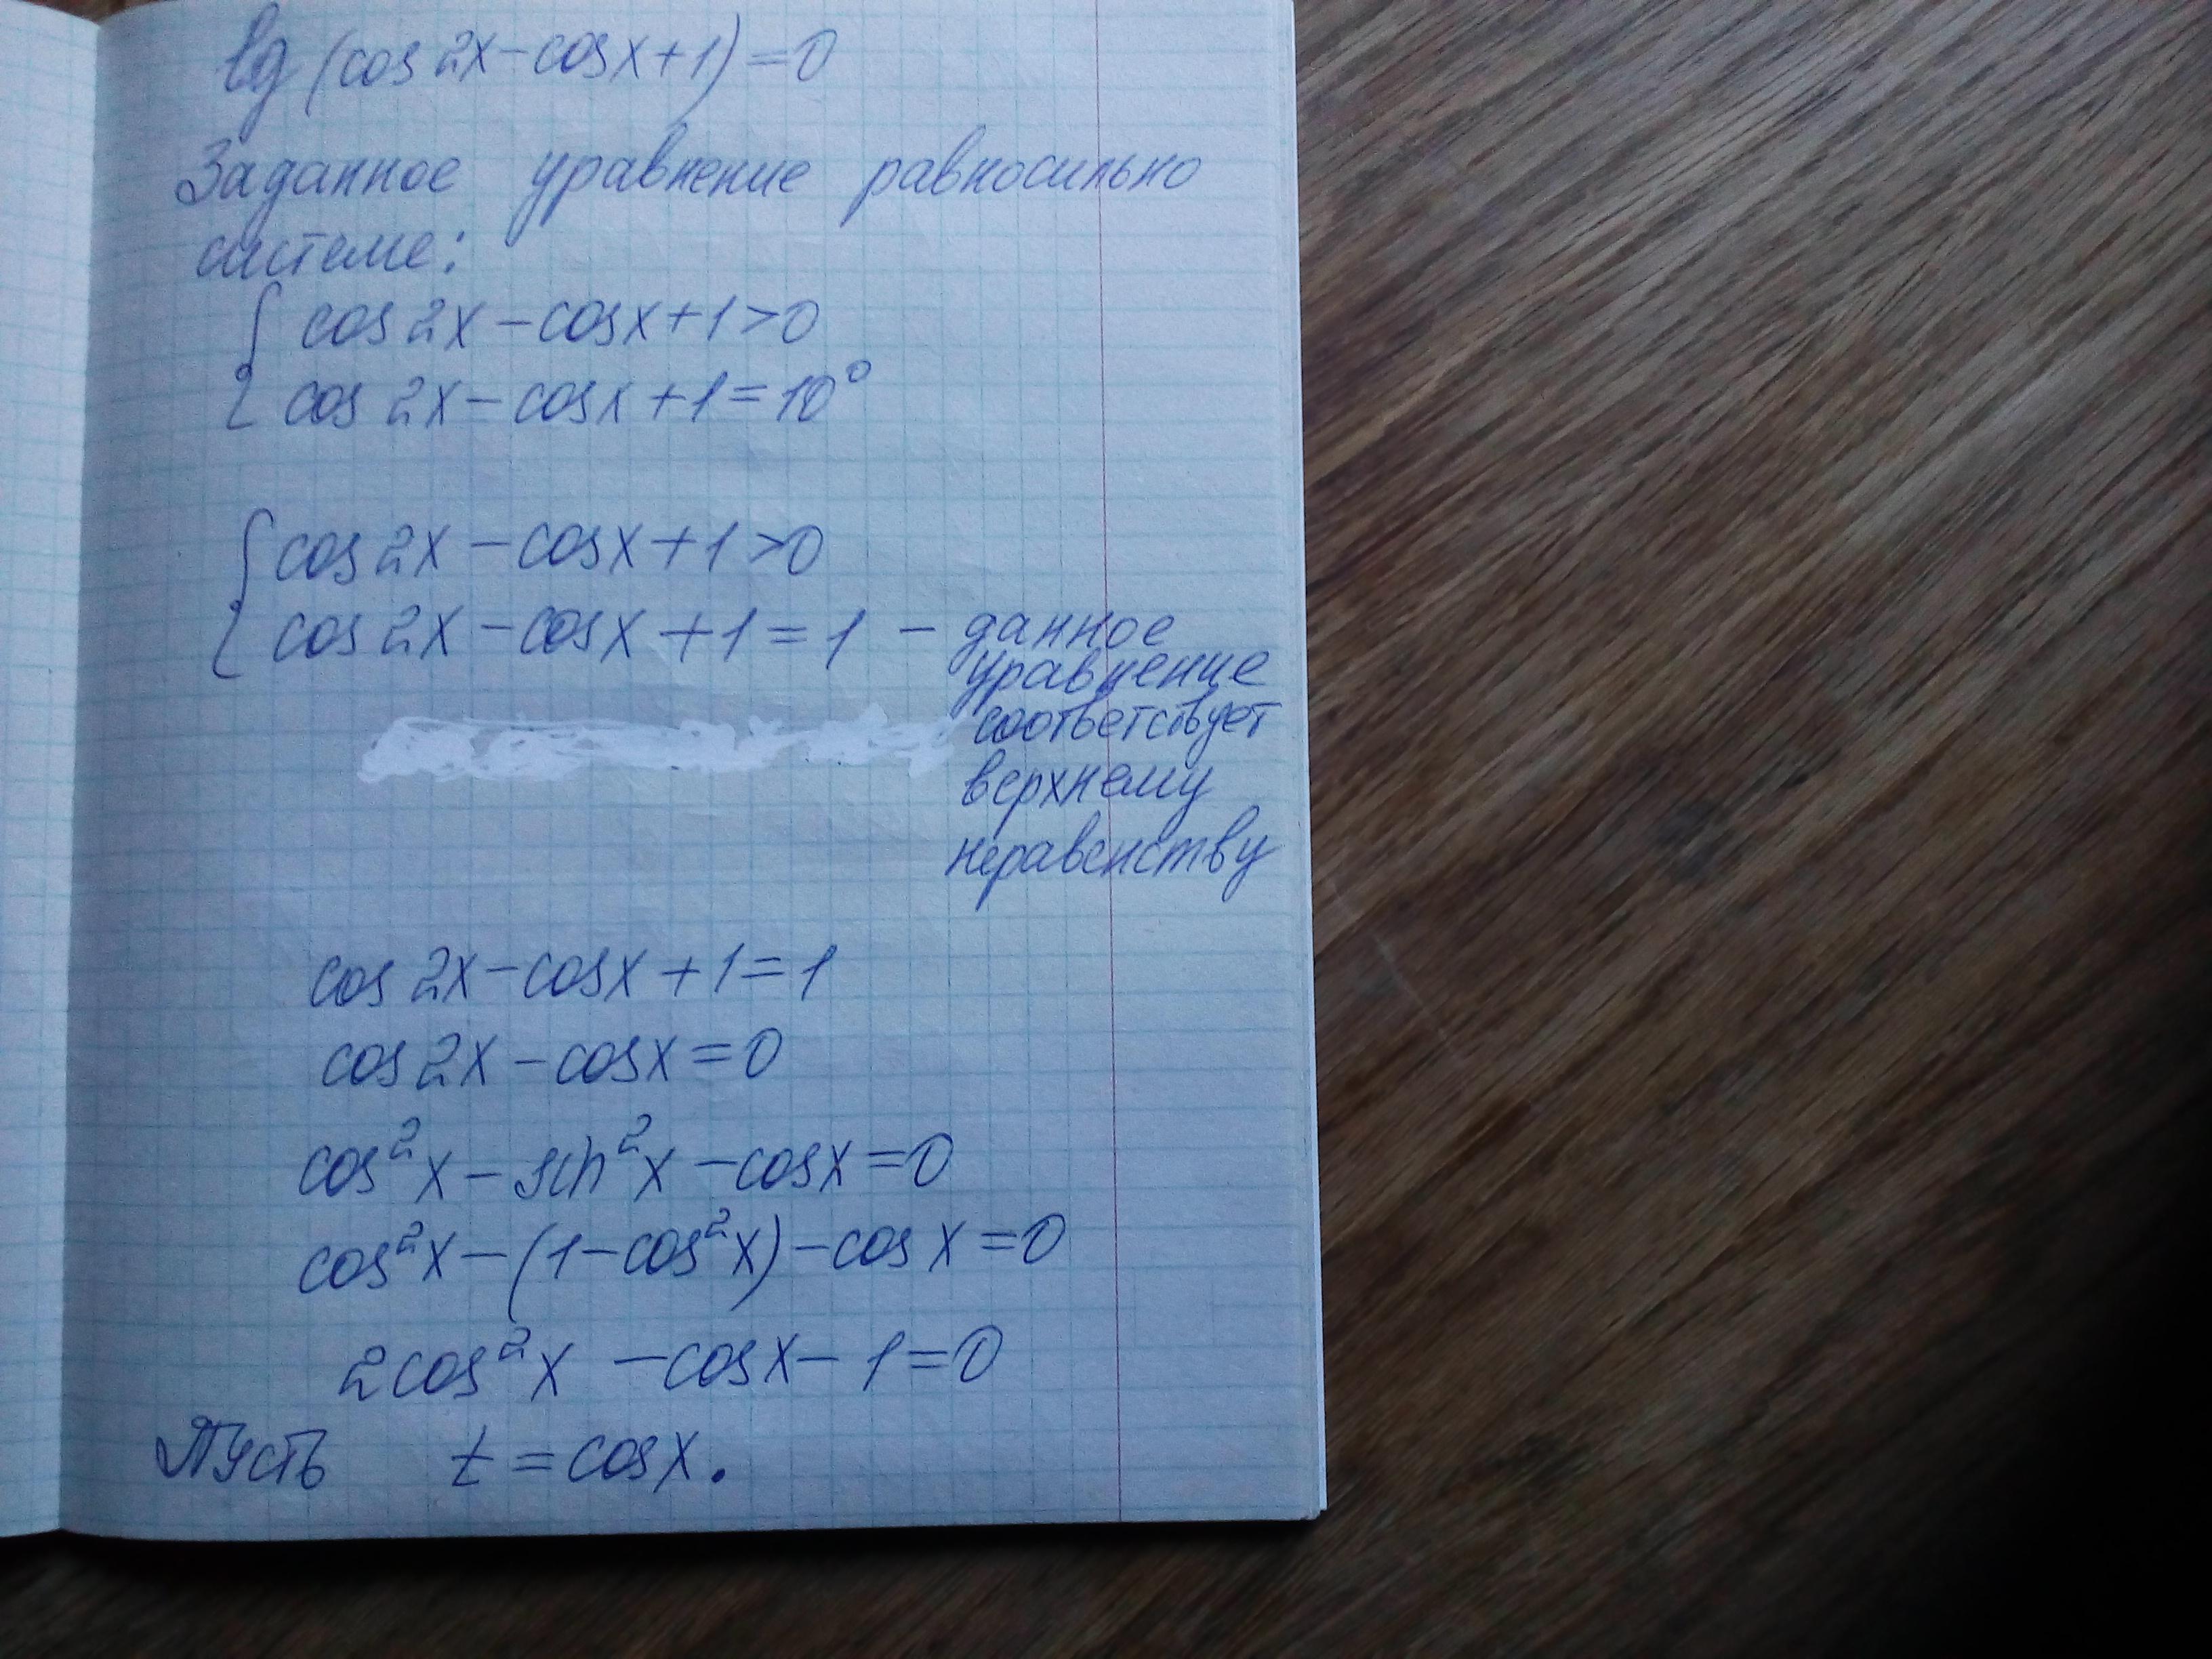 lg (cos 2x - cos x + 1) = 0
Заданное уравнение равносильно
системе:
{ cos 2x - cos x + 1 > 0
cos 2x - cos x + 1 = 10⁰
{ cos 2x - cos x + 1 > 0
cos 2x - cos x + 1 = 1 - данное
уравнение
соответствует
верхнему
неравенству
cos 2x - cos x + 1 = 1
cos 2x - cos x = 0
cos² x - sin² x - cos x = 0
cos² x - (1 - cos² x) - cos x = 0
2 cos² x - cos x - 1 = 0
Пусть t = cos x.